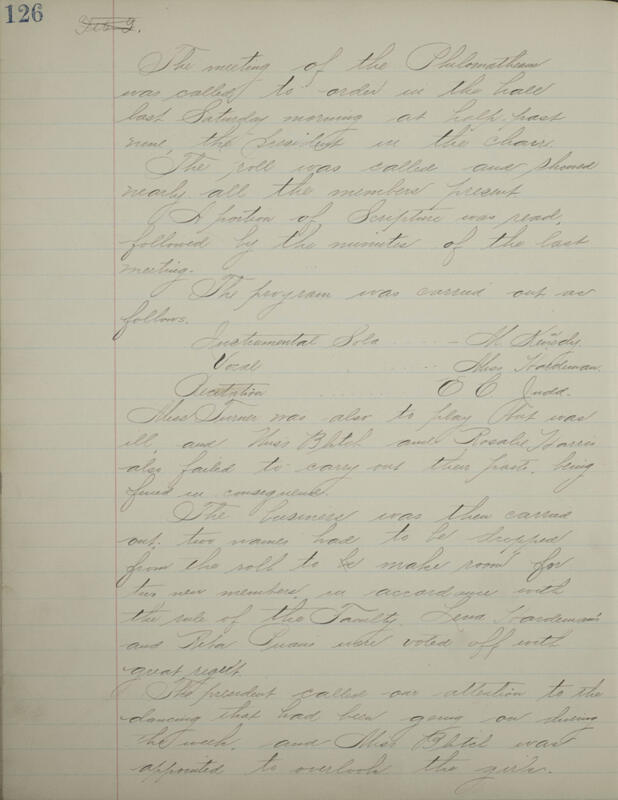 126
Feb 9.
The meeting of the Philomathean
was called to order in the hall
last Saturday morning at half past
nine, the President in the chair.
The roll was called and showed
nearly all the members present
A portion of Scripture was read,
followed by the minutes of the last
meeting.
The program was carried out as
follows.
Instrumental Solo - M. Kennedy
Vocal Miss Hardeman.
Recitation E C Judd.
Miss Turner was also to play, but was
ill, and Miss Blitch and Rosalie Harris
also failed to carry out their parts, being
fined in consequence.
The business was then carried
out; two names had to be dropped
from the roll to make room for
two new members, in accordance with
the rule of the Faculty. Lena Hardeman's
and Reba Evans were voted off with
great regret.
The president called our attention to the
dancing that had been going on during
the week, and Miss Blitch was
appointed to overlook the girls.